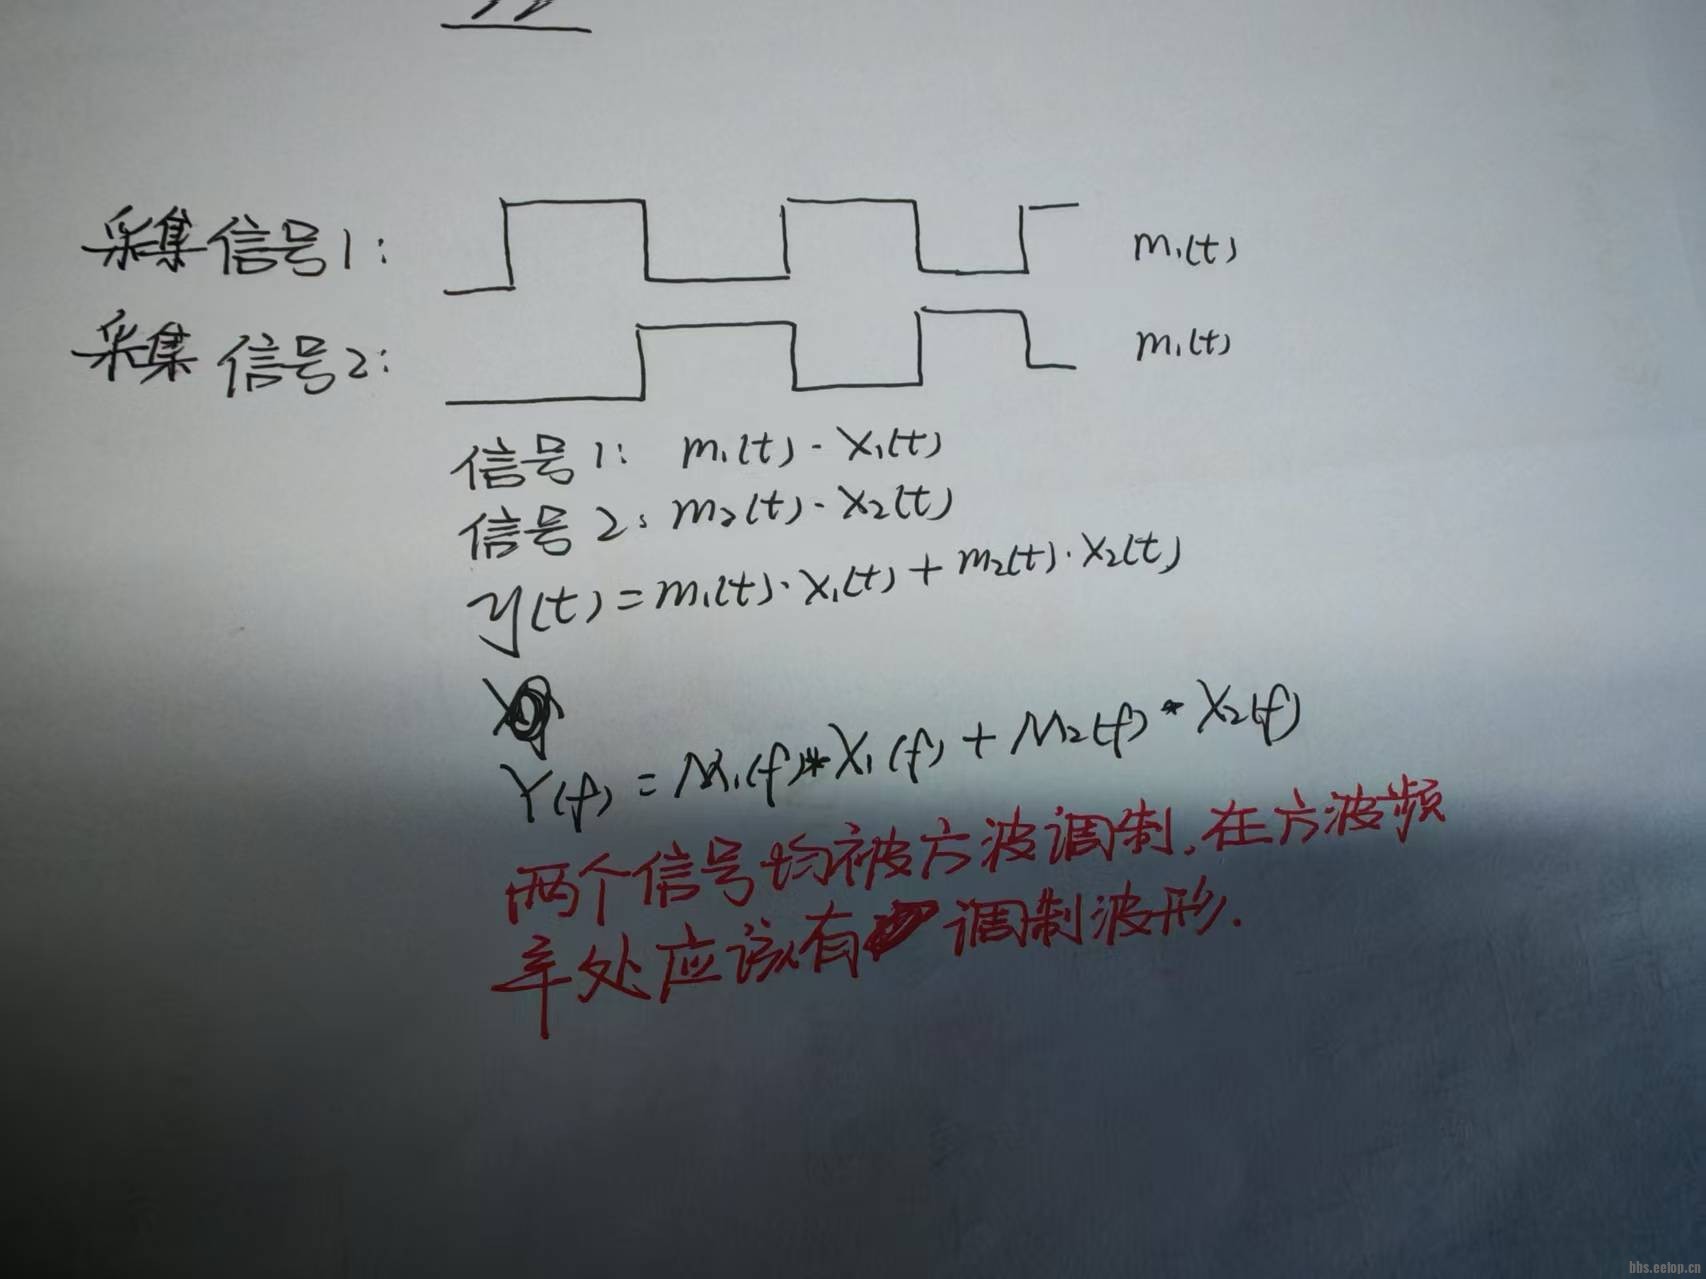 采集信号1: m₁(t)
采集信号2: m₁(t)
信号1: m₁(t)·X₁(t)
信号2: m₂(t)·X₂(t)
y(t)=m₁(t)·X₁(t)+m₂(t)·X₂(t)
Y(f)=M₁(f)*X₁(f)+M₂(f)*X₂(f)
两个信号均被方波调制,在方波频
率处应该有调制波形.
bbs.eetop.cn